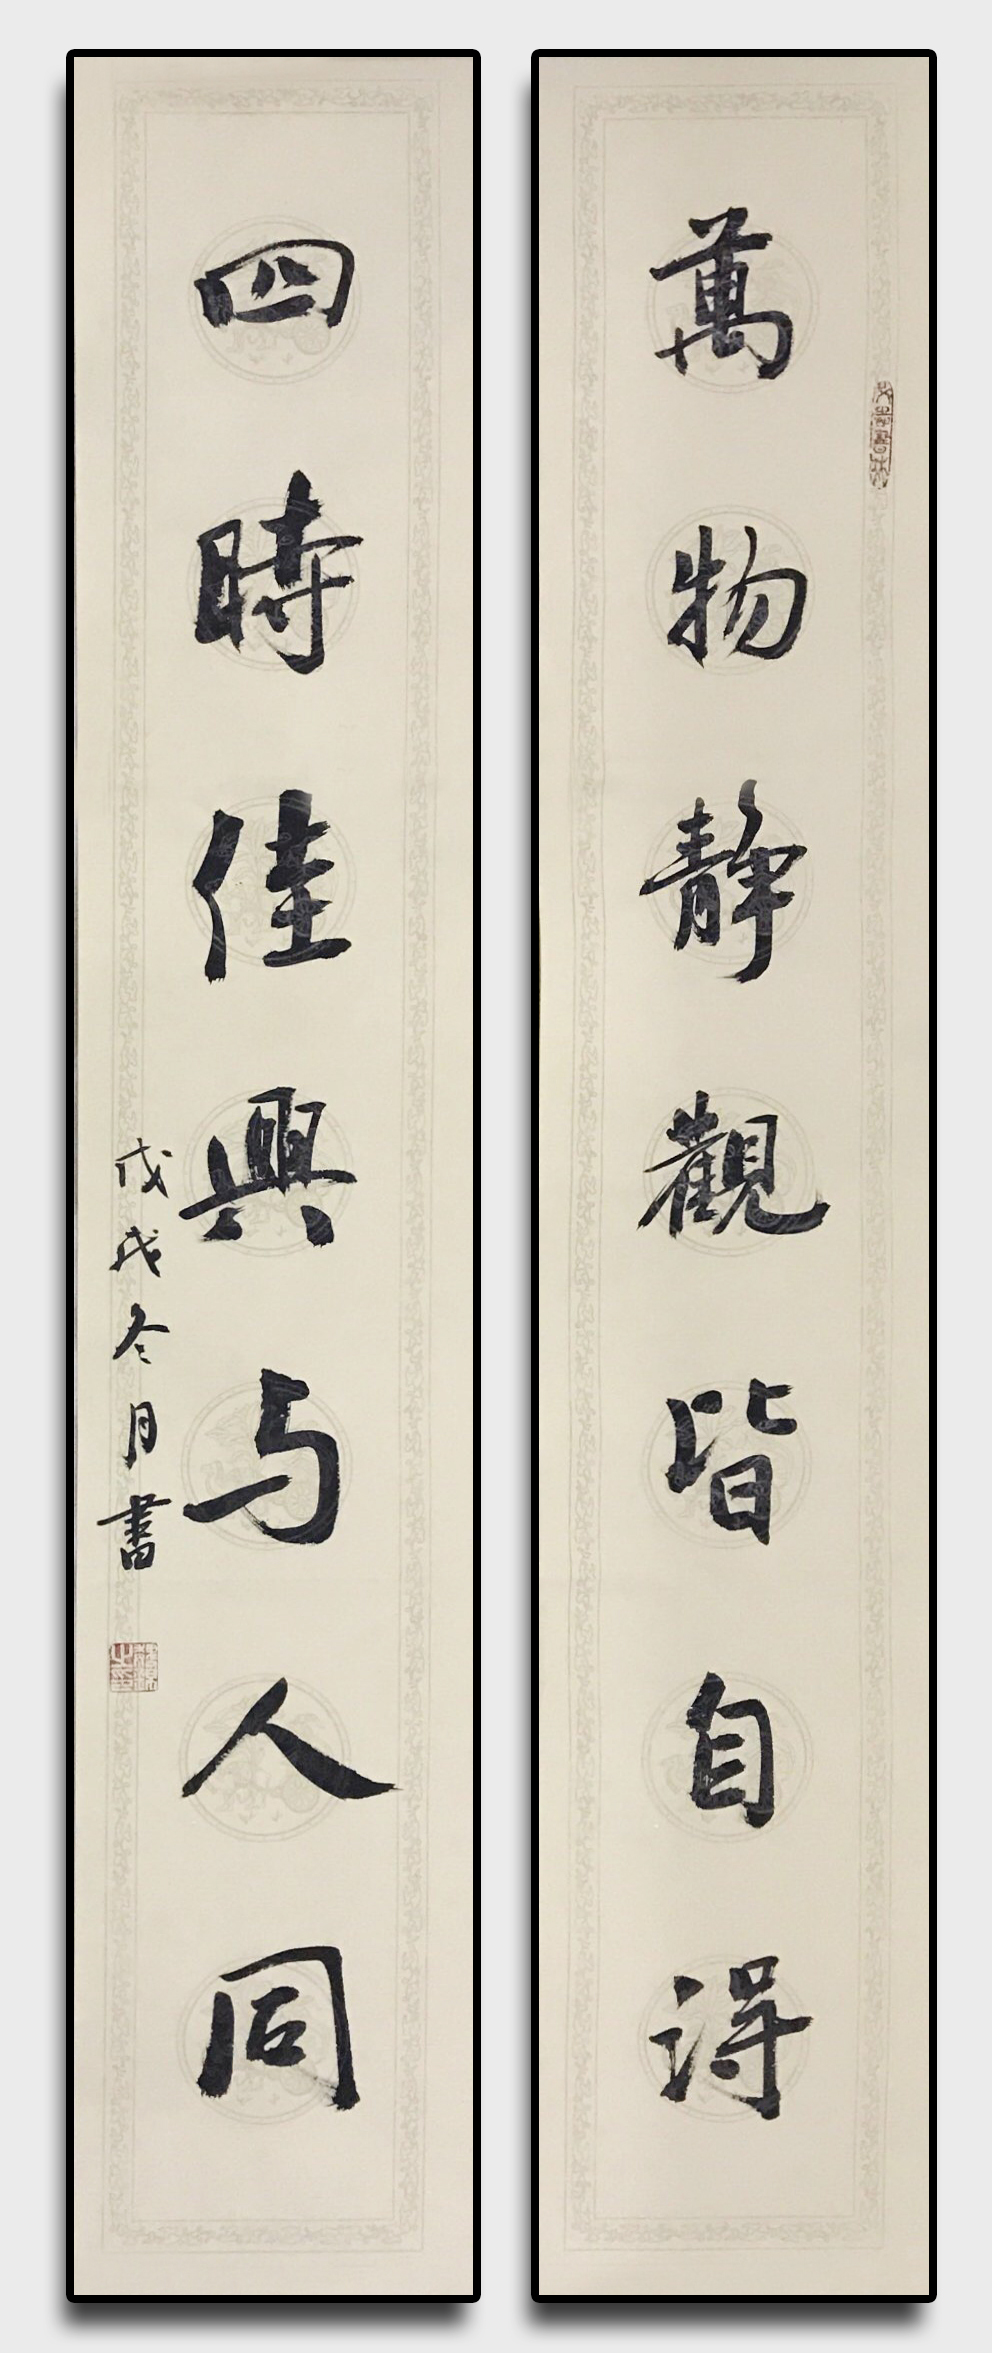 萬物靜觀皆自得
四時佳興与人同
戊戌冬月書